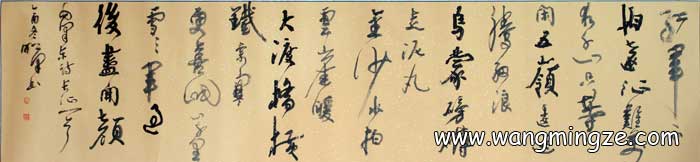 紅軍不
怕遠征難萬
水千山只等
閒五嶺逶迤
騰細浪
烏蒙磅礴
走泥丸
金沙水拍
雲崖暖
大渡橋橫
鐵索寒
更喜岷山千里
雪三軍過
後盡開顏
詩長征一首
乙酉冬
www.wangmingze.com